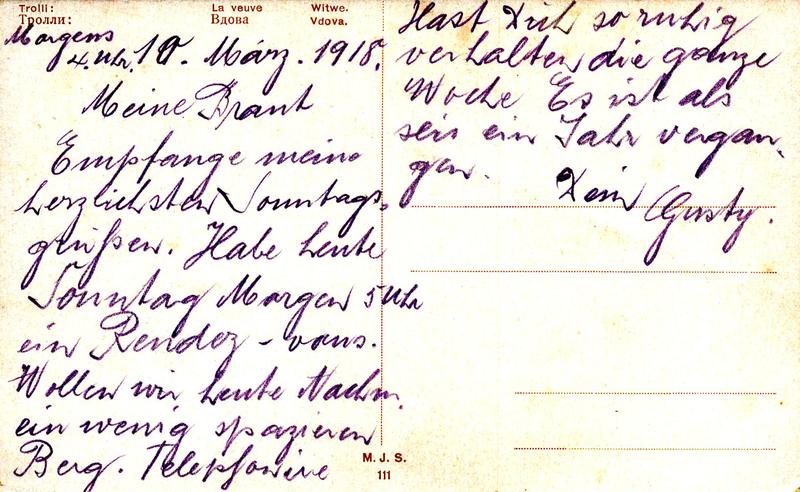 Trolli:
Тролли:
La veuve
Вдова
Witwe.
Vdova.
Morgens
4. Uhr. 10. März. 1918.
Meine Braut
Empfange meine
herzlichsten Sonntags-
grüßen. Habe heute
Sonntag Morgen 5 Uhr
ein Rendez-vous.
Wollen wir heute Nachm.
ein wenig spazieren
Berg. Telephonire
Hast Dich so ruhig
verhalten die ganze
Woche Es ist als
sei ein Jahr vergan-
gen.
Dein Gusty.
M. J. S.
111